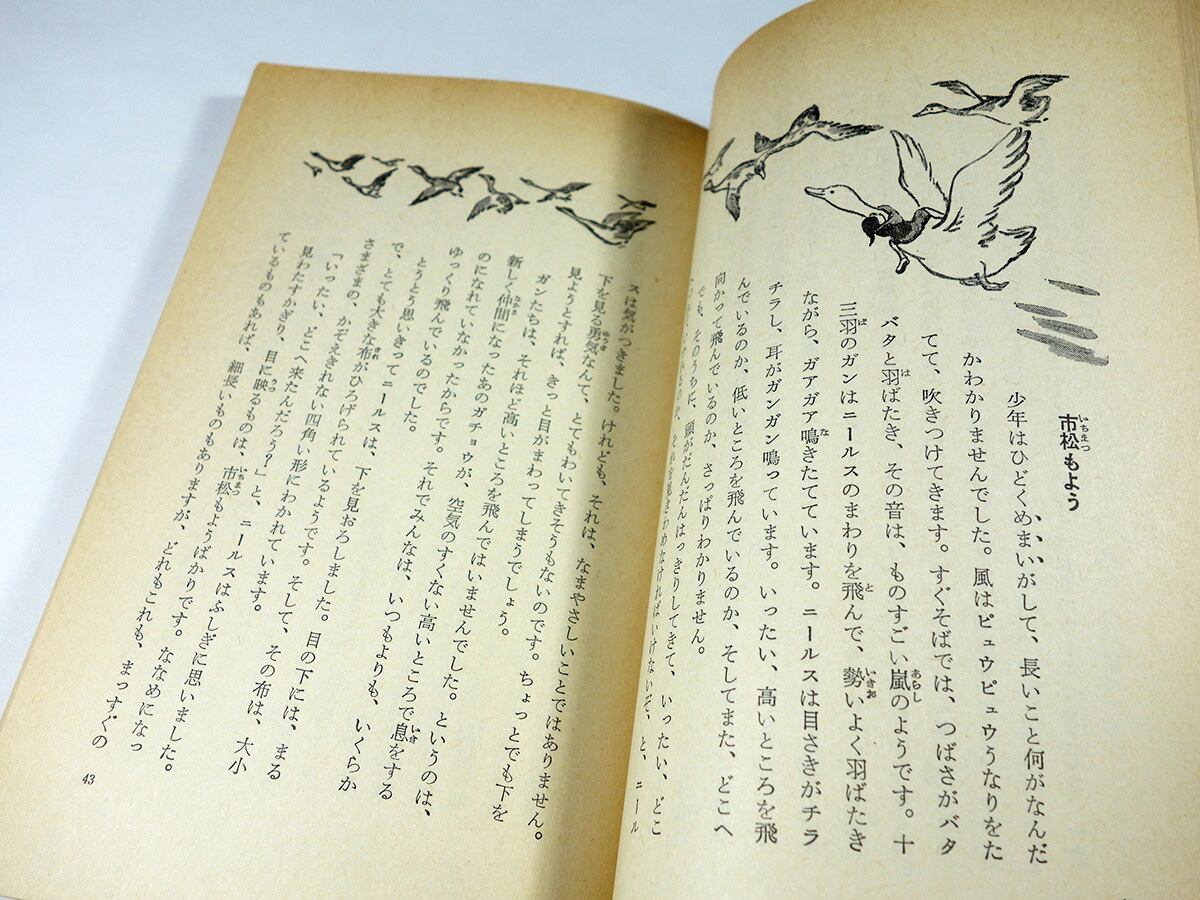 市松もよう
少年はひどくめまいがして、長いこと何がなんだ
かわかりませんでした。風はピュウピュウうなりをた
てて、吹きつけてきます。すぐそばでは、つばさがバタ
バタと羽ばたき、その音は、ものすごい嵐のようです。十
三羽のガンはニールスのまわりを飛んで、勢いよく羽ばたき
ながら、ガアガア鳴きたてています。ニールスは目さきがチラ
チラし、耳がガンガン鳴っています。いったい、高いところを飛
んでいるのか、低いところを飛んでいるのか、そしてまた、どこへ
向かって飛んでいるのか、さっぱりわかりません。
でも、そのうちに、頭がだんだんはっきりしてきて、いったい、どこ
それを見きわめなければいけないぞ、と、ニール
スは気がつきました。けれども、それは、なまやさしいことではありません。
下を見る勇気なんて、とてもわいてきそうもないのです。ちょっとでも下を
見ようとすれば、きっと目がまわってしまうでしょう。
ガンたちは、それほど高いところを飛んではいませんでした。というのは、
新しく仲間になったあのガチョウが、空気のすくない高いところで息をする
のになれていなかったからです。それでみんなは、いつもよりも、いくらか
ゆっくり飛んでいるのでした。
とうとう思いきってニールスは、下を見おろしました。目の下には、まる
で、とても大きな布がひろげられているようです。そして、その布は、大小
さまざまの、かぞえきれない四角い形にわかれています。
「いったい、どこへ来たんだろう?」と、ニールスはふしぎに思いました。
見わたすかぎり、目に映るものは、市松もようばかりです。ななめになっ
ているものもあれば、細長いものもありますが、どれもこれも、まっすぐの
43